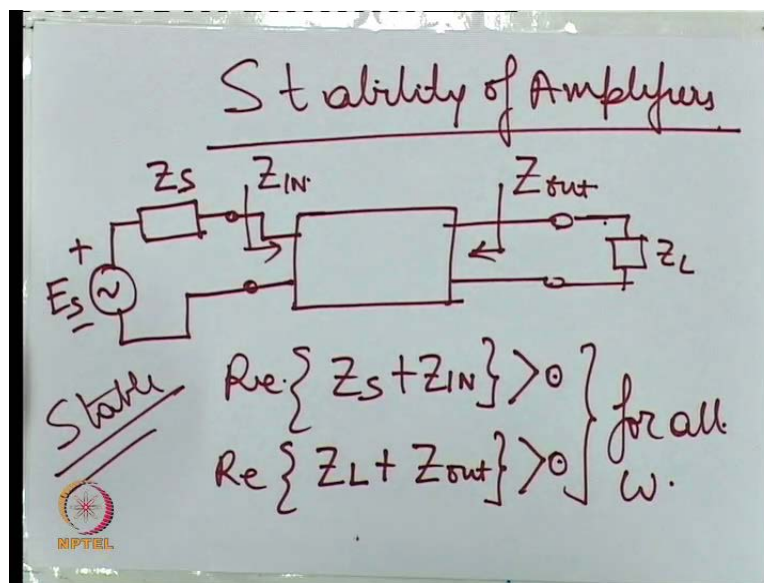 Stability of Amplifiers
ZS ZIN. Zout
+
Es
-
ZL
Stable
Re.{ ZS + ZIN } > 0
Re { ZL + Zout } > 0
} for all ω.
NPTEL